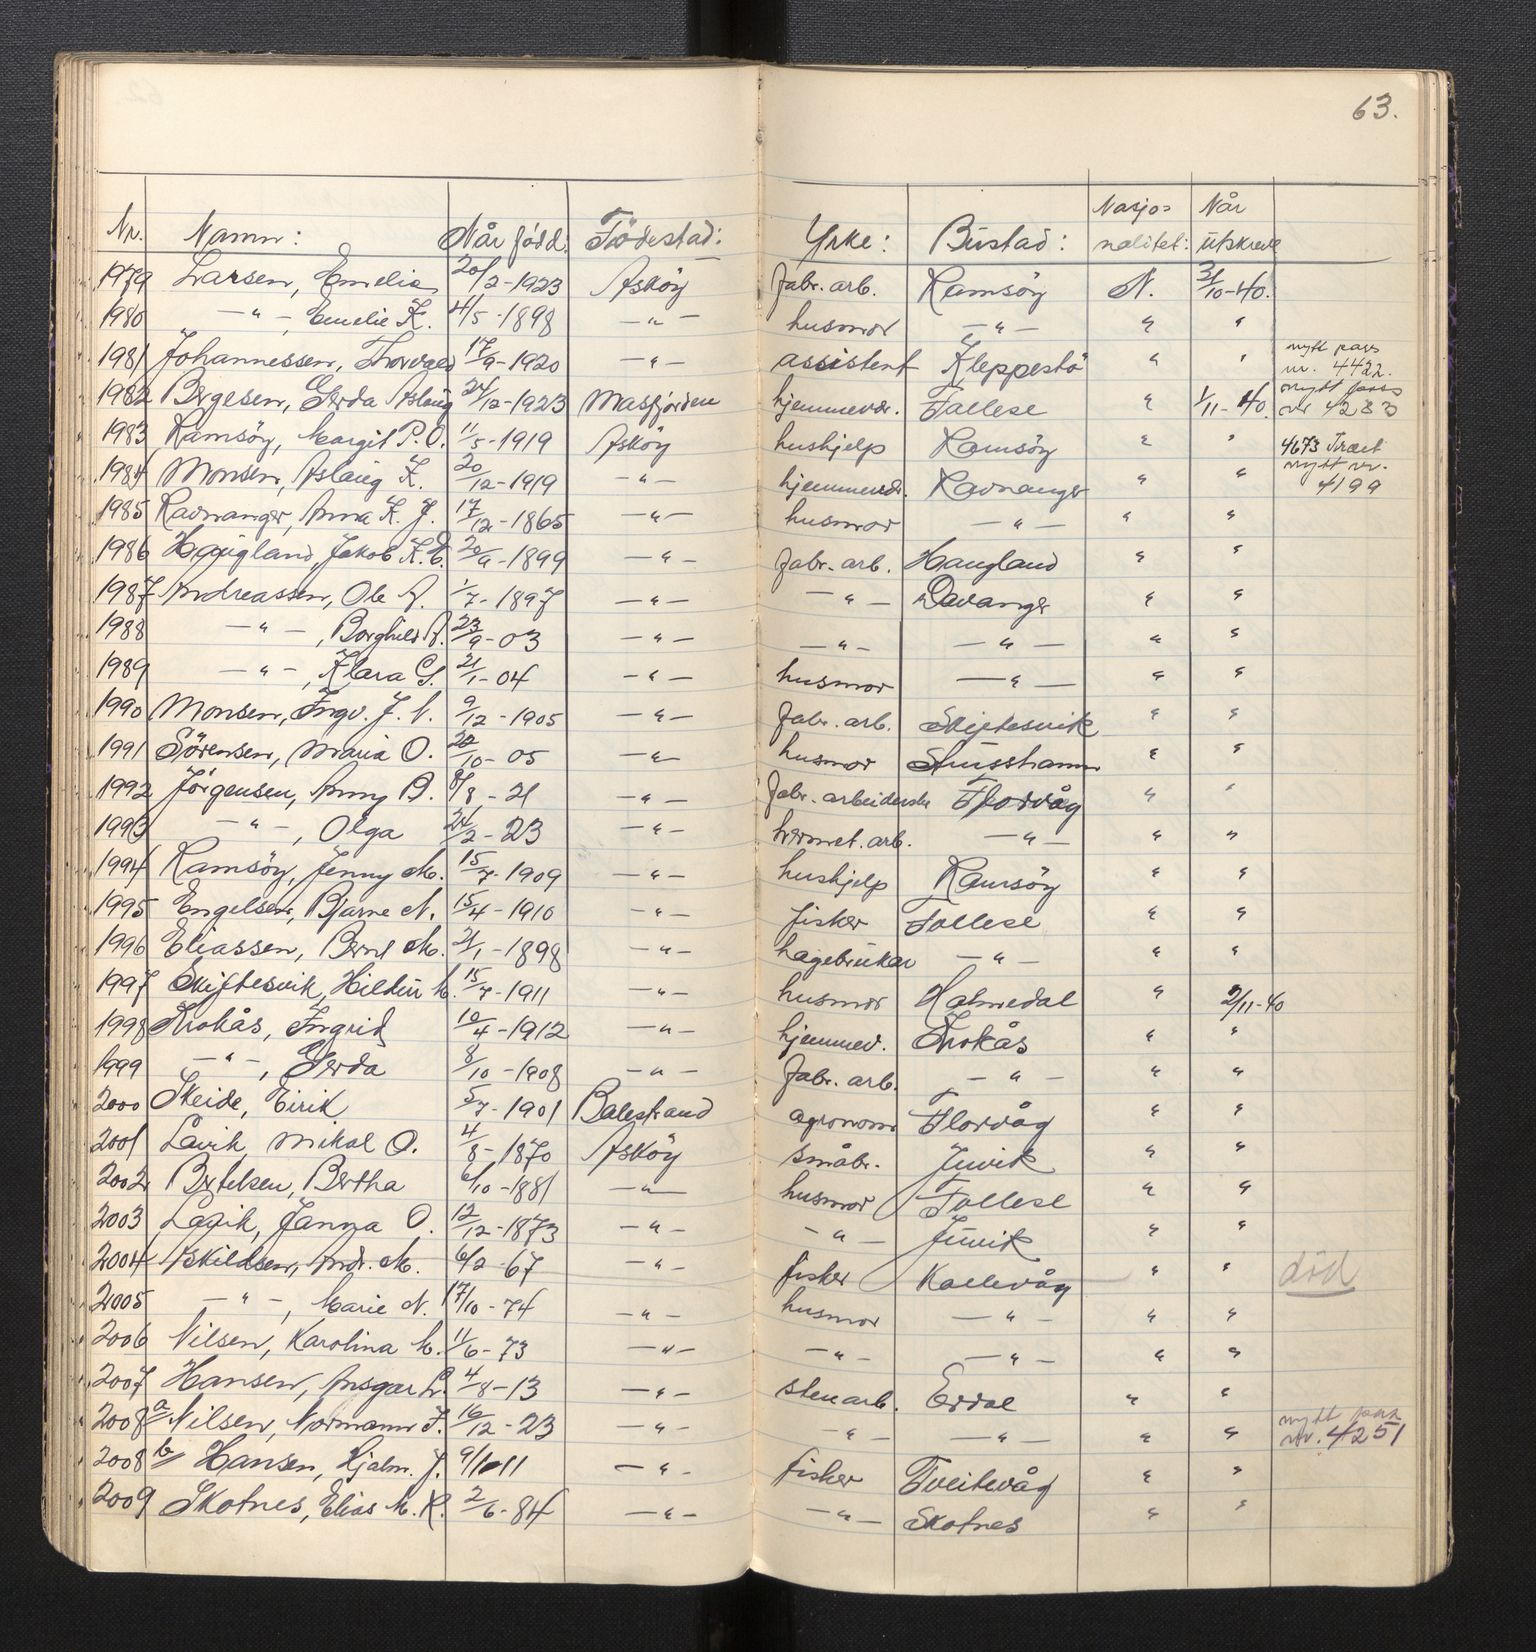 63.
Nr. Namn: Når född: Födestad: Yrke: Bustad: Nasjo= nalitet: Når utskreve
1979 Larsen, Emelie 20/2-1923 Asköy fabr. arb. Ramsöy N. 31/10-40.
1980 —"—, Emelie K. 4/5-1898 —"— husmor —"— " "
1981 Johannessen, Thorvald 17/9-1920 —"— assistent Kleppestö " " nytt pass nr. 4422.
1982 Bergesen, Gerda Aslaug 24/12-1923 Masfjorden hjemmevær. Follese " 1/11-40. nytt pass nr 4233
1983 Ramsöy, Margit P.O. 11/5-1919 Asköy hushjelp Ramsöy " " 4673
1984 Monsen, Aslaug K. 20/12-1919 —"— hjemmevær. Ravnanger " " nytt nr. 4199
1985 Ravnanger, Anna K. J. 17/12-1865 —"— husmor —"— " "
1986 Haugland, Jakob K.E. 20/9-1899 —"— fabr. arb. Haugland " "
1987 Andreassen, Ole A. 1/7-1897 —"— —"— Davanger " "
1988 —"—, Borghild A. 23/9-03 —"— —"— —"— " "
1989 —"—, Klara G. 21/1-04 —"— husmor —"— " "
1990 Monsen, Ingv. J. M. 9/12-1905 —"— fabr. arb. Skiftesvik " "
1991 Sörensen, Maria O. 28/10-05 —"— husmor Strusshamn " "
1992 Jörgensen, Anny B. 8/8-21 —"— fabr. arbeiderske Florvåg " "
1993 —"—, Olga 24/2-23 —"— hermet. arb. —"— " "
1994 Ramsöy, Jenny M. 15/7-1909 —"— hushjelp Ramsöy " "
1995 Engelsen, Bjarne N. 15/4-1910 —"— fisker Follese " "
1996 Eliassen, Bernt M. 21/1-1898 —"— hagebrukar —"— " "
1997 Skiftesvik, Hildur M. 15/7-1911 —"— husmor Holmedal " 2/11-40
1998 Krokås, Ingrid 10/4-1912 —"— hjemmev. Krokås " "
1999 —"—, Gerda 8/10-1908 —"— fabr. arb. —"— " "
2000 Skeide, Eirik 5/7-1901 Balestrand agronom Florvåg " "
2001 Låvik, Mikal O. 4/8-1870 Asköy småbr. Juvik " "
2002 Bertelsen, Bertha 6/10-1881 —"— husmor Follese " "
2003 Lavik, Janna O. 12/12-1873 —"— —"— Juvik " "
2004 Askildsen, Andr. M. 6/2-67 —"— fisker Kollevåg " " död
2005 —"—, Marie N. 17/10-74 —"— husmor —"— " "
2006 Nilsen, Karolina M. 11/6-73 —"— —"— —"— " "
2007 Hansen, Ansgar L. 4/8-13 —"— stenarb. Erdal " "
2008 a/ Nilsen, Normann J. 16/12-23 —"— —"— —"— " " nytt pass nr. 4251
2008 b/ Hansen, Hjalm. J. 9/1-11 —"— fisker Tveitevåg " "
2009 Skotnes, Elias M. K. 2/6-84 —"— —"— Skotnes " "